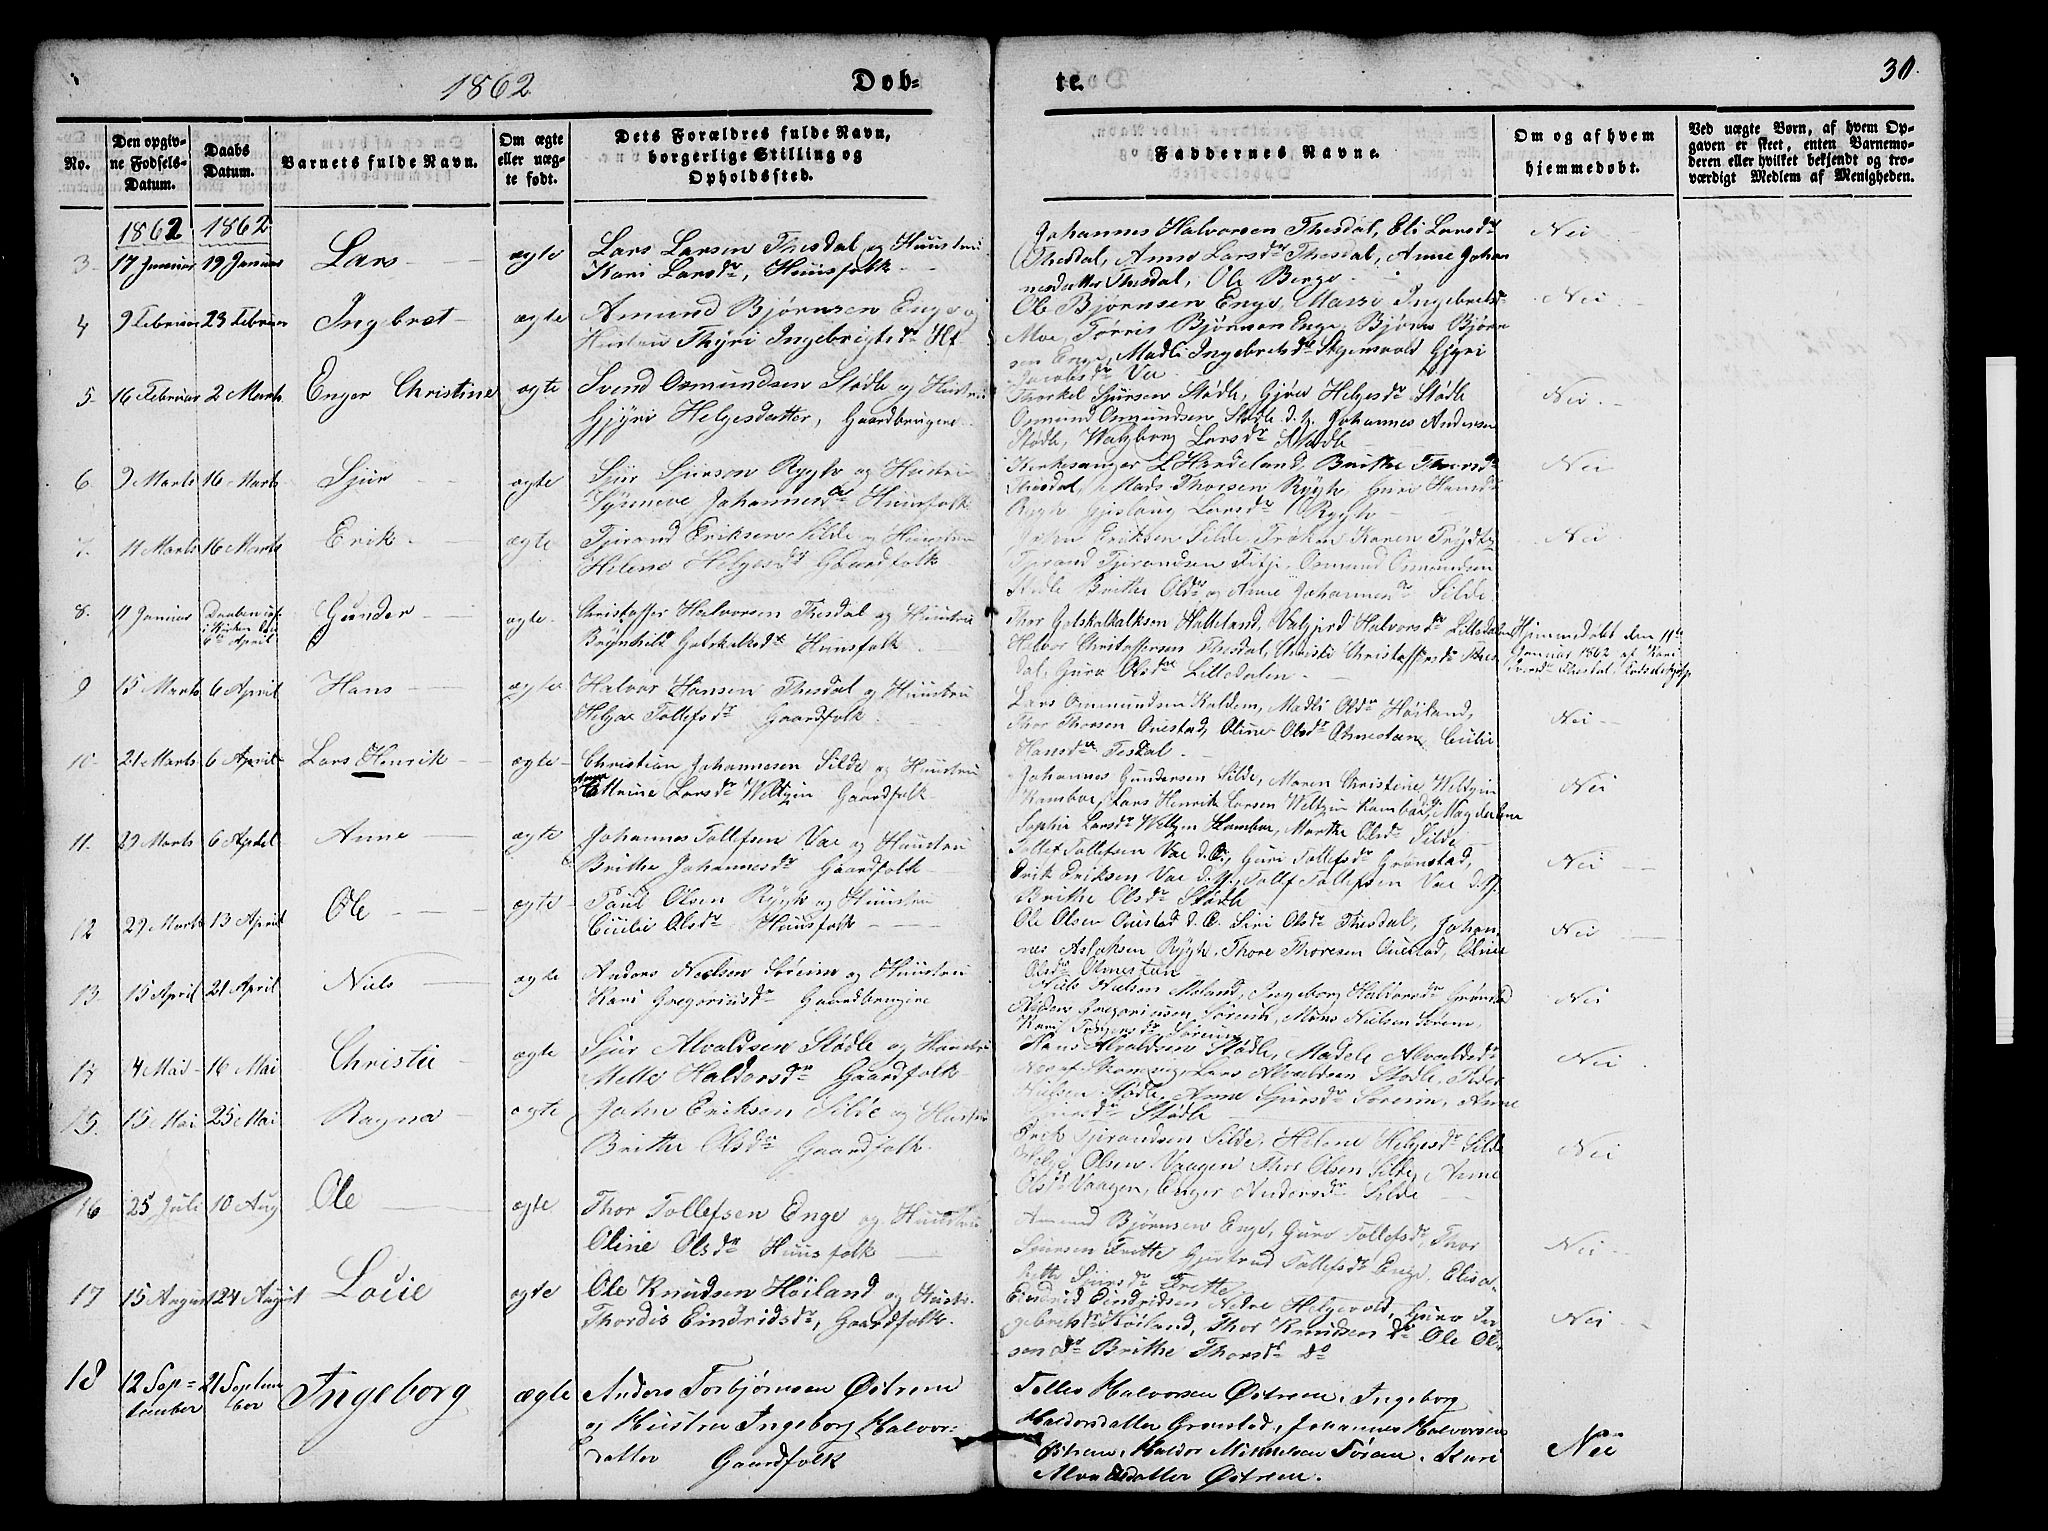 1862
Døb-
te.
30.
No.
Den opgiv-
ne Fødsels-
Datum.
Daabs
Datum.
Barnets fulde Navn.
Om ægte
eller uæg-
te født.
Dets Forældres fulde Navn,
borgerlige Stilling og
Opholdssted.
Faddernes Navne.
Om og af hvem
hjemmedøbt.
Ved uægte Børn, af hvem Op-
gaven er skeet, enten Barnemo-
deren eller hvilket bekjendt og tro-
værdigt Medlem af Menigheden.
1862 1862
3. 17 Januar 19 Januar Lars ægte
Lars Larsen Thesdal og Huustru
Kari Larsdr, Huusfolk
Johannes Halvorsen Thesdal, Eli Larsdr
Thesdal, Anne Larsdr Thesdal, Anne Johan
nesdatter Thesdal, Ole Berge
Nei
4 9 Februar 23 Februar Ingebret ægte
Amund Bjørnsen Enge og
Hustru Thyri Ingebrigtsdr
Ole Bjørnsen Enge, Ingebrets
Moe, Tørris Bjørnsen Enge, Bjørn Bjørn
sen Enge, Madli Ingebretsdr Gjyri
Jacobsdr Va
Nei
5. 16 Februar 2 Marts Enger Christine ægte
Svend Osmundsen Stødle og Hustru
Gjyri Helgesdatter, Gaardbrugere
Thorkel Sjursen Stødle, Gjøri Helgesdr Stødle
Osmund Osmundsen Stødle d. y. Johannes Andersen
Stødle, Walzborg Larsdr Stødle
Nei
6. 9 Marts 16 Marts Sjur ægte
Sjur Sjurson Rygh og Hustru
Synneve Johannesdr Huusfolk
Kirkesanger L Hardeland, Brithe Thorsdr
Thesdal, Mads Thorsen Rygh, Guri Hansdr
Rygh Gjislaug Larsdr Rygh
Nei
7. 11 Marts 16 Marts Erik ægte
Tjerand Eriksen Silde og Huustru
Helene Helgesdr Gaardfolk
John Eriksen Silde, Frøken Karen
Tjerand Tjerandsen Fitje, Osmund Osmundsen
Stødle Brithe Olsdr og Anne Johannesdr Silde
Nei
8. 11 Januar Gunder ægte
6te April
Christoffer Halvorsen Thesdal og Huustru
Brynhild Gotskalksdr Huusfolk
Thor Gotskalkalksen Hatteland, Valgjerd Halvorsdr Lilledalen
Halvor Christoffersen Thesdal, Christi Christoffersdr Thes
dal, Guro Olsdr Lilledalen
Hjemmedøbt den 11te
Januar 1862 af Kari
9 15 Marts 6 April Hans ægte
Halvor Hansen Thesdal og Huustru
Helga Tollefsdr Gaardfolk
Lars Osmundsen Kaldem, Madli Olsdr Høiland,
Thor Thorsen Ovestad, Oline Olsdr Cicilie
Hansdr Tesdal
Nei
10. 21 Marts 6 April Lars Henrik ægte
Christian Johannesen Silde og Huustru
Anne
Cathrine Larsdr Weltzin Gaardfolk
Johannes Gundersen Silde, Maren Christine Weltzin
Kambo, Lars Henrik Larsen Weltzin Kambo d. y. Magdalene
Sophie Larsdr Weltzin Kambo, Marthe Olsdr Silde
Nei
11. 29 Marts 6 April Anne ægte
Johannes Tollefsen Vae og Huustru
Brithe Johannesdr Gaardfolk
Tollef Tollefsen Vae d. E. Guri Tollefsdr Grønstad,
Erik Eriksen Vae d. y. Tollef Tollefsen Vae d. y.
Brithe Olsdr Stødle
Nei
12 29 Marts 13 April Ole ægte
Paul Olsen Rygh og Huustru
Cicilie Olsdr Huusfolk
Ole Olsen Ovestad d. E. Siri Olsdr Thesdal, Johan-
nes Aslaksen Rygh, Thore Thoresen Ovestad, Oline
Olsdr
Nei
13. 15 April 21 April Niels ægte
Anders Nielsen Søreim og Huustru
Kari Gregoriusdr Gaardbrugere
Niels Nielsen Moland, Ingeborg Haldorsdr Grønstd
Anders Gregoriusen Søreim, Mons Nielsen Søreim,
Kari Søreim
Nei
14 4 Mai 16 Mai Christie ægte
Sjur Alvaldsen Stødle og Huustru
Mette Haldorsdr Gaardfolk
Hans Alvaldsen Stødle, Madele Alvaldsdr
Lars Alvaldsen Stødle, Peder
Nielsen Stødle, Anne Sjursdr Søreim, Anne
Sjursdr Stødle
Nei
15. 15 Mai 25 Mai Ragna ægte
John Eriksen Silde og Hustru
Brithe Olsdr Gaardfolk
Erik Tjerandsen Silde, Helene Helgesdr Silde
Helge Olsen Vaagen, Thor Olsen Silde, Anne
Olsdr Vaagen, Enger Andersdr Silde
Nei
16 25 Juli 10 Aug Ole ægte
Thor Tollefsen Enge og Huustru
Oline Olsdr Huusfolk
Amund Bjørnsen Enge, Guro Tollefsdr, Thor
Sjursen Frette Gjertrud Tollefsdr Enge, Elisa-
bethe Sjursdr Frette
Nei
17 15 August 24 August Lovie ægte
Ole Knudsen Høiland og Hustr.
Thordis Eindridsdr, Gaardfolk
Eindrid Eindridsen Nedre Helgevold, Guro In-
gebretsdr Høiland, Thor Knudsen do Ole Ol-
sen do Brithe Thorsdr Do
Nei
18 12 Sep- 21 Septem Ingeborg ægte
tember ber
Anders Torbjørnsen Østreme
og Hustru Ingeborg Halvor-
datter Gaardfolk
Tolles Halvorsen Østreme, Ingeborg
Haldorsdatter Grønstad, Johannes Halvorsen
Østreme, Haldor Mikkelsen Søreim, Kari
Alvaldsdatter Østreme.
Nei